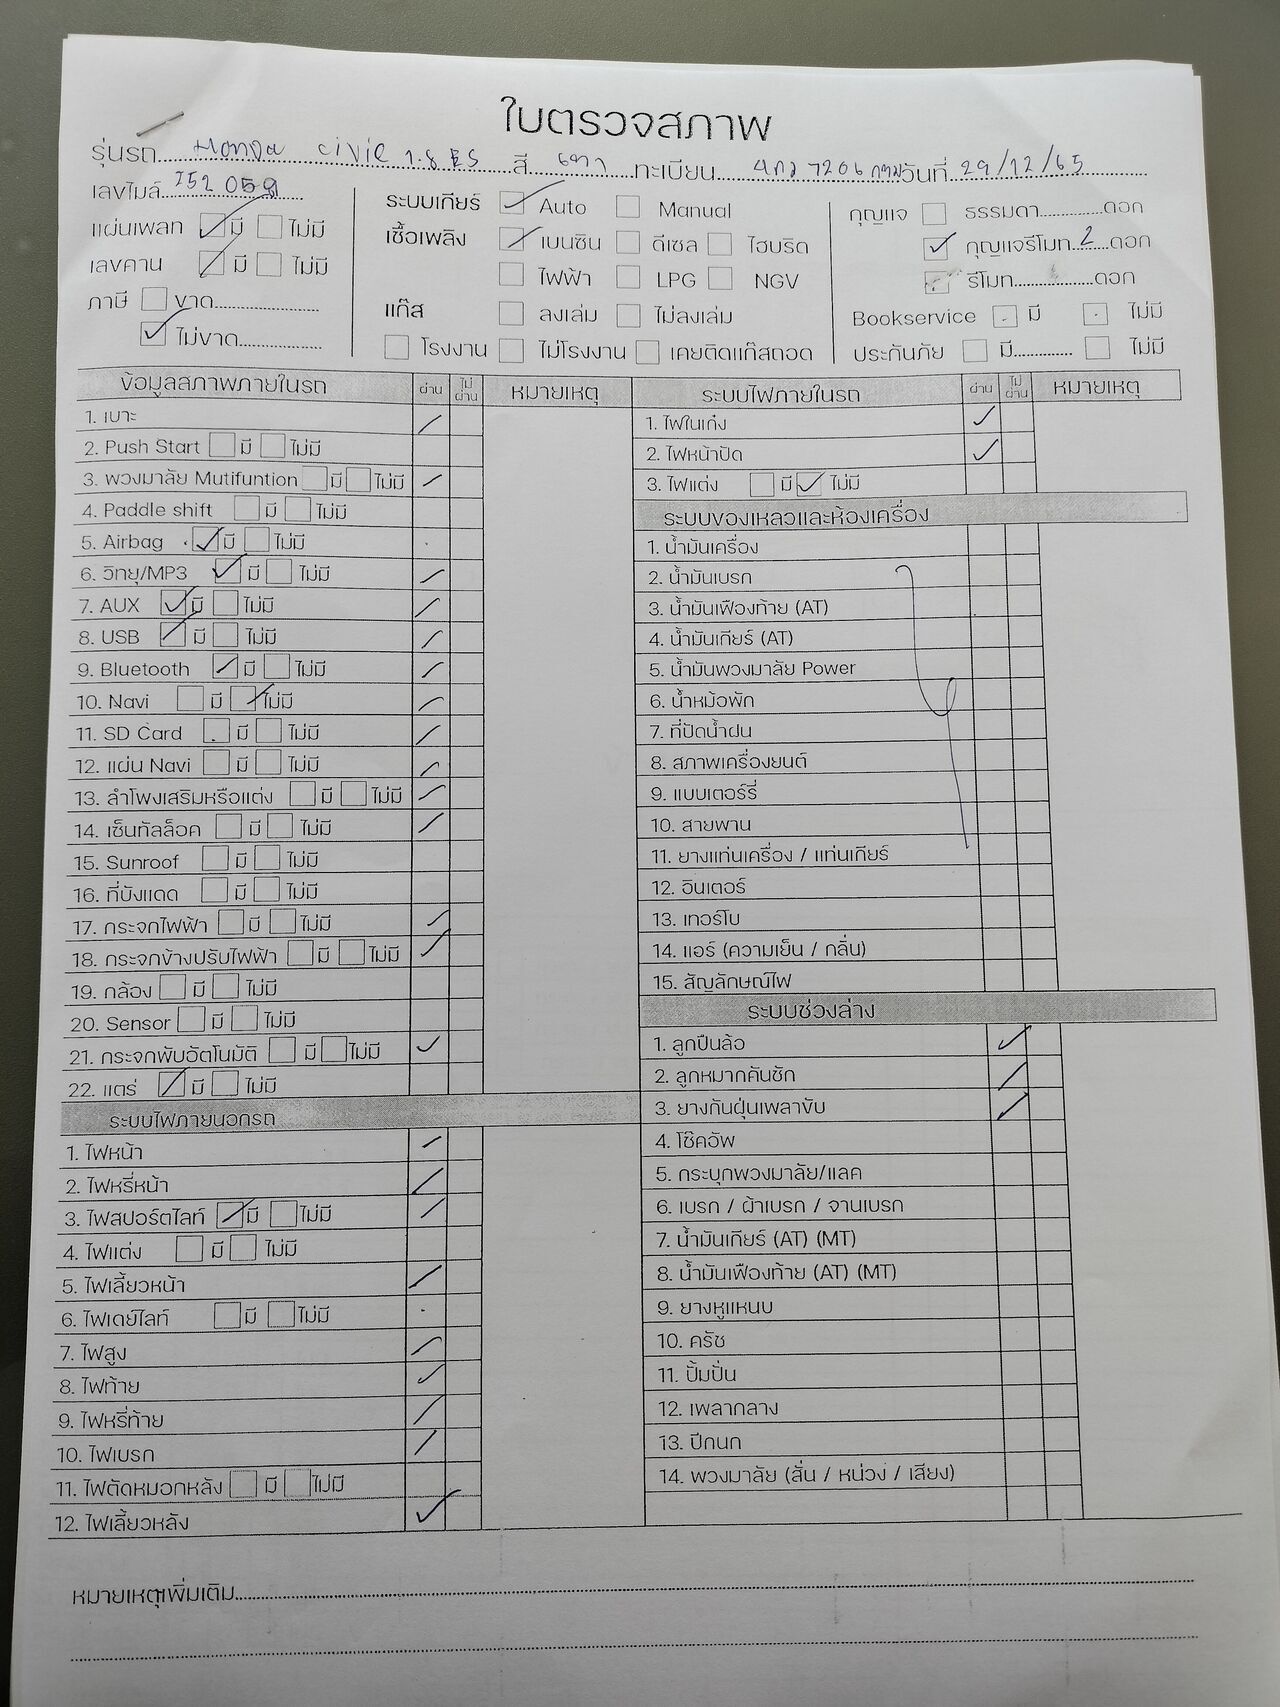 ใบตรวจสภาพ
รุ่นรถ Honda civic 1.8 ES สี เทา ทะเบียน 7206 กทม วันที่ 29/12/65
เลขไมล์ 152 059
แผ่นเพลท มี ไม่มี
เลขคาน มี ไม่มี
ภาษี ขาด
ไม่ขาด
ระบบเกียร์ Auto Manual
เชื้อเพลิง เบนซิน ดีเซล ไฮบริด
ไฟฟ้า LPG NGV
แก๊ส ลงเล่ม ไม่ลงเล่ม
โรงงาน ไม่โรงงาน เคยติดแก๊สถอด
กุญแจ ธรรมดา ดอก
กุญแจรีโมท 2 ดอก
รีโมท ดอก
Bookservice มี ไม่มี
ประกันภัย มี ไม่มี
ข้อมูลสภาพภายในรถ ผ่าน ไม่ผ่าน หมายเหตุ
1. เบาะ
2. Push Start มี ไม่มี
3. พวงมาลัย Mutifuntion มี ไม่มี
4. Paddle shift มี ไม่มี
5. Airbag มี ไม่มี
6. วิทยุ/MP3 มี ไม่มี
7. AUX มี ไม่มี
8. USB มี ไม่มี
9. Bluetooth มี ไม่มี
10. Navi มี ไม่มี
11. SD Card มี ไม่มี
12. แผ่น Navi มี ไม่มี
13. ลำโพงเสริมหรือแต่ง มี ไม่มี
14. เซ็นทัลล็อค มี ไม่มี
15. Sunroof มี ไม่มี
16. ที่บังแดด มี ไม่มี
17. กระจกไฟฟ้า มี ไม่มี
18. กระจกข้างปรับไฟฟ้า มี ไม่มี
19. กล้อง มี ไม่มี
20. Sensor มี ไม่มี
21. กระจกพับอัตโนมัติ มี ไม่มี
22. แตร่ มี ไม่มี
ระบบไฟภายนอกรถ
1. ไฟหน้า
2. ไฟหรี่หน้า
3. ไฟสปอร์ตไลท์ มี ไม่มี
4. ไฟแต่ง มี ไม่มี
5. ไฟเลี้ยวหน้า
6. ไฟเดย์ไลท์ มี ไม่มี
7. ไฟสูง
8. ไฟท้าย
9. ไฟหรี่ท้าย
10. ไฟเบรก
11. ไฟตัดหมอกหลัง มี ไม่มี
12. ไฟเลี้ยวหลัง
ระบบไฟภายในรถ ผ่าน ไม่ผ่าน หมายเหตุ
1. ไฟในเก๋ง
2. ไฟหน้าปัด
3. ไฟแต่ง มี ไม่มี
ระบบของเหลวและห้องเครื่อง
1. น้ำมันเครื่อง
2. น้ำมันเบรก
3. น้ำมันเฟืองท้าย (AT)
4. น้ำมันเกียร์ (AT)
5. น้ำมันพวงมาลัย Power
6. น้ำหม้อพัก
7. ที่ปัดน้ำฝน
8. สภาพเครื่องยนต์
9. แบบเตอร์รี่
10. สายพาน
11. ยางแท่นเครื่อง / แท่นเกียร์
12. อินเตอร์
13. เทอร์โบ
14. แอร์ (ความเย็น / กลิ่น)
15. สัญลักษณ์ไฟ
ระบบช่วงล่าง
1. ลูกปืนล้อ
2. ลูกหมากคันชัก
3. ยางกันฝุ่นเพลาขับ
4. โช๊คอัพ
5. กระบุกพวงมาลัย/แลค
6. เบรก / ผ้าเบรก / จานเบรก
7. น้ำมันเกียร์ (AT) (MT)
8. น้ำมันเฟืองท้าย (AT) (MT)
9. ยางหูแหนบ
10. ครัช
11. ปั้มปั่น
12. เพลากลาง
13. ปีกนก
14. พวงมาลัย (สั่น / หน่วง / เสียง)
หมายเหตุเพิ่มเติม